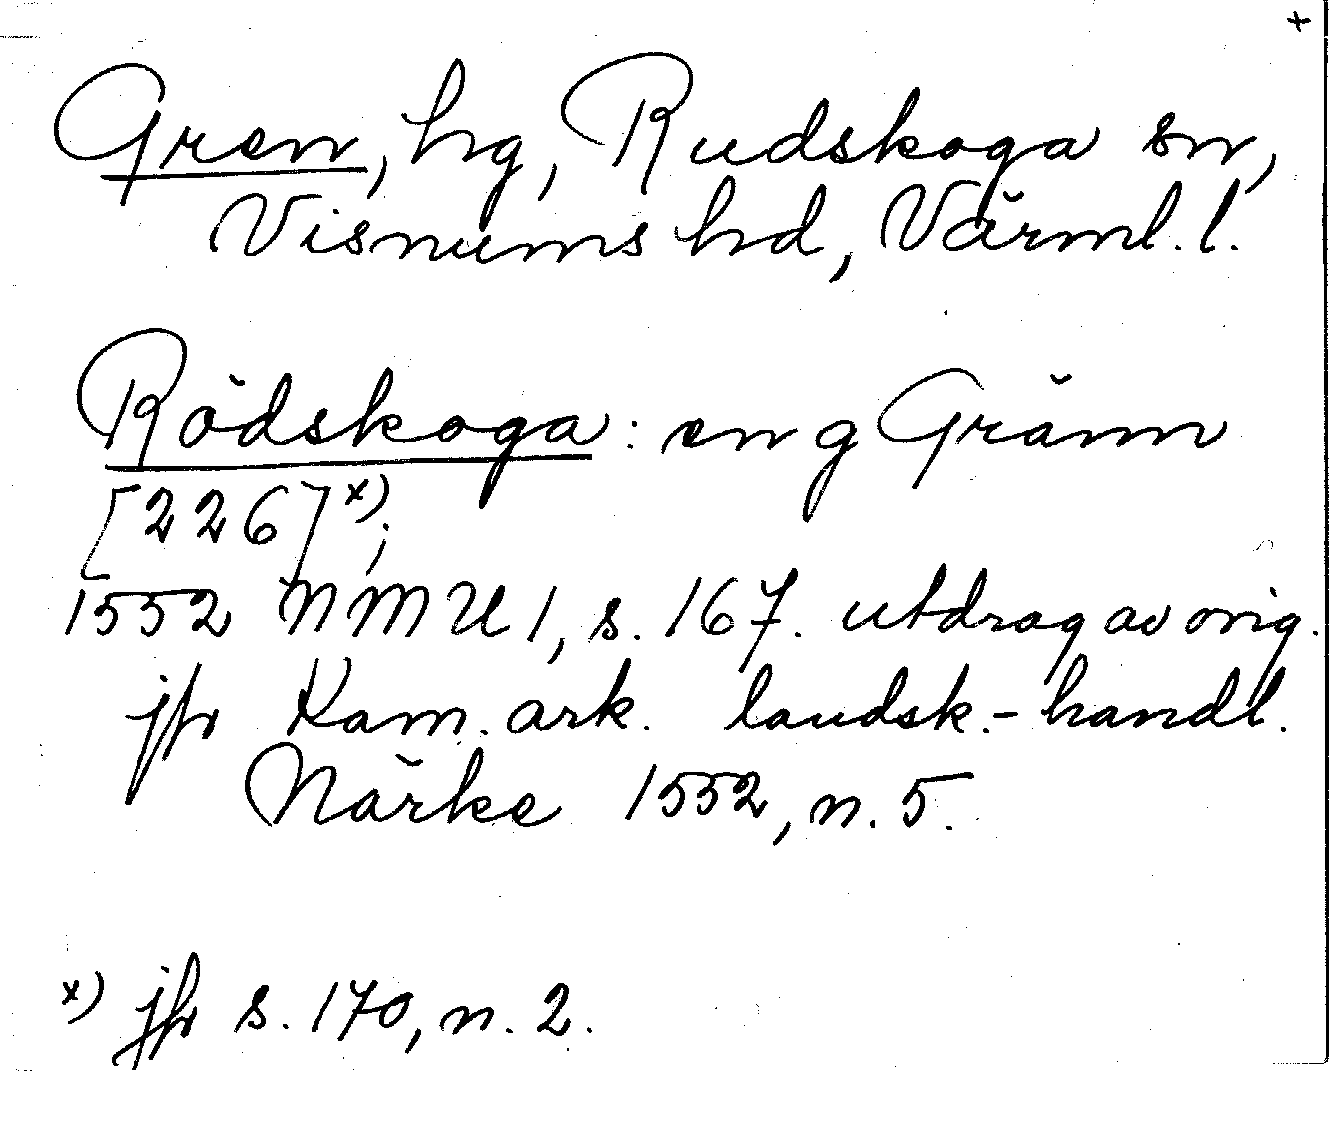 +
Gren, hg, Rudskoga sn,
Visnums hd, Värml. l.
Rödskoga: en g Gränn
[226]x);
1552 NMU 1, s. 167. utdrag av orig.
jfr Kam. ark. landsk.-handl.
Närke 1552, n. 5.
x) jfr s. 170, n. 2.